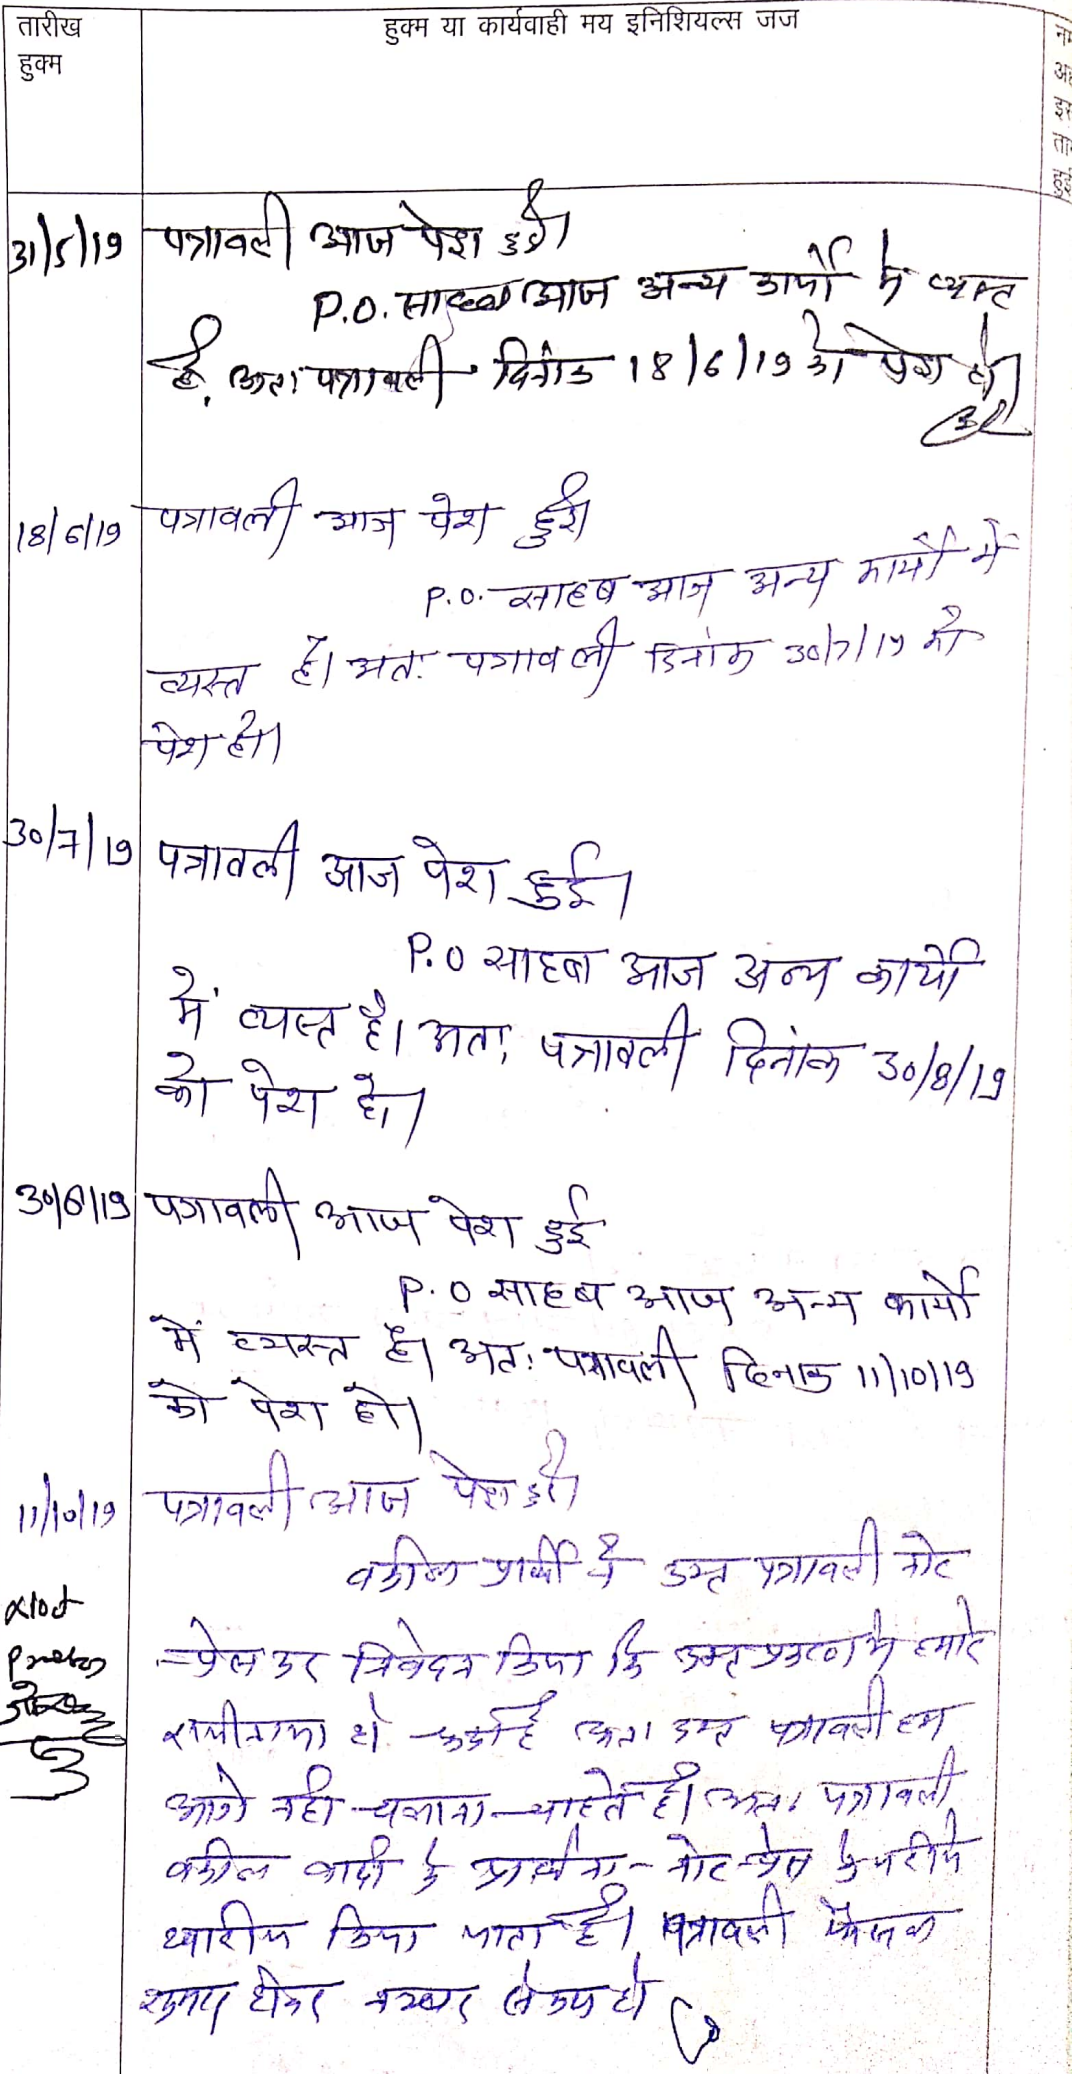 तारीख
हुक्म
हुक्म या कार्यवाही मय इनिशियल्स जज
31/5/19 पत्रावली आज पेश हुई।
P.O. साहब आज अन्य कार्यो में व्यस्त
है, अतः पत्रावली दिनांक 18/6/19 को पेश हो।
18/6/19 पत्रावली आज पेश हुई।
P.O. साहब आज अन्य कार्यो में
व्यस्त है। अतः पत्रावली दिनांक 30/7/19 को
पेश हो।
30/7/19 पत्रावली आज पेश हुई।
P.O साहब आज अन्य कार्यो
में व्यस्त है। अतः पत्रावली दिनांक 30/8/19
को पेश हो।
30/8/19 पत्रावली आज पेश हुई
P.O साहब आज अन्य कार्यो
में व्यस्त है। अतः पत्रावली दिनांक 11/10/19
को पेश हो।
11/10/19 पत्रावली आज पेश हुई।
वकील प्रार्थी ने उक्त पत्रावली नोट
प्रेस कर निवेदन किया कि उक्त प्रकरण में हमारे
राजीनामा हो चुका है अतः उक्त पत्रावली हम
आगे नही चलाना चाहते है। अतः पत्रावली
वकील वादी के प्रार्थना नोट प्रेस के जरीये
खारीज किया जाता है। पत्रावली फैसल
शुमार होकर नम्बर से कम हो